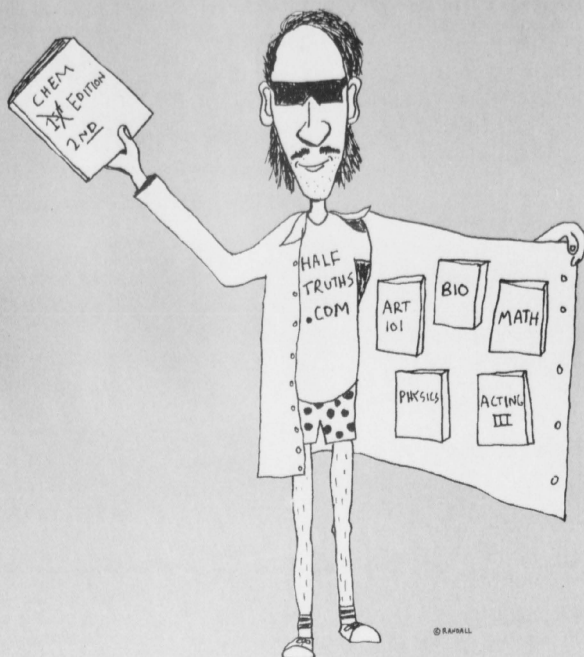 CHEM
1st EDITION
2ND
HALF
TRUTHS
.COM
ART
101
BIO
MATH
PHYSICS
ACTING
III
©RANDALL